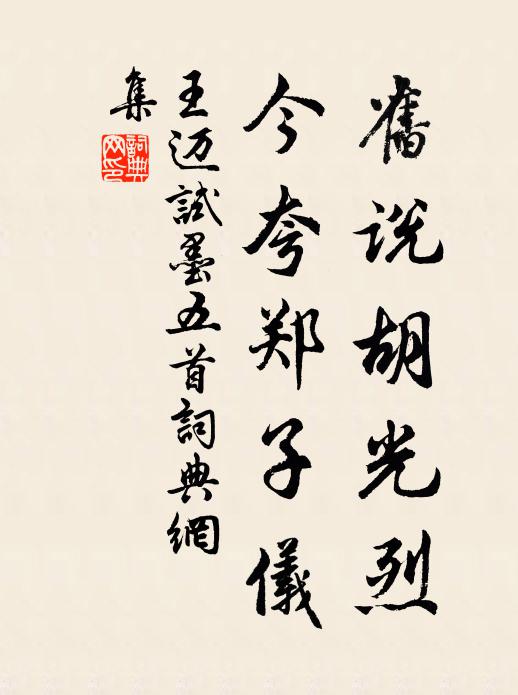 舊说胡光烈
今夸郑子儀
王迈試墨五首詞典網
集
詞典
网印